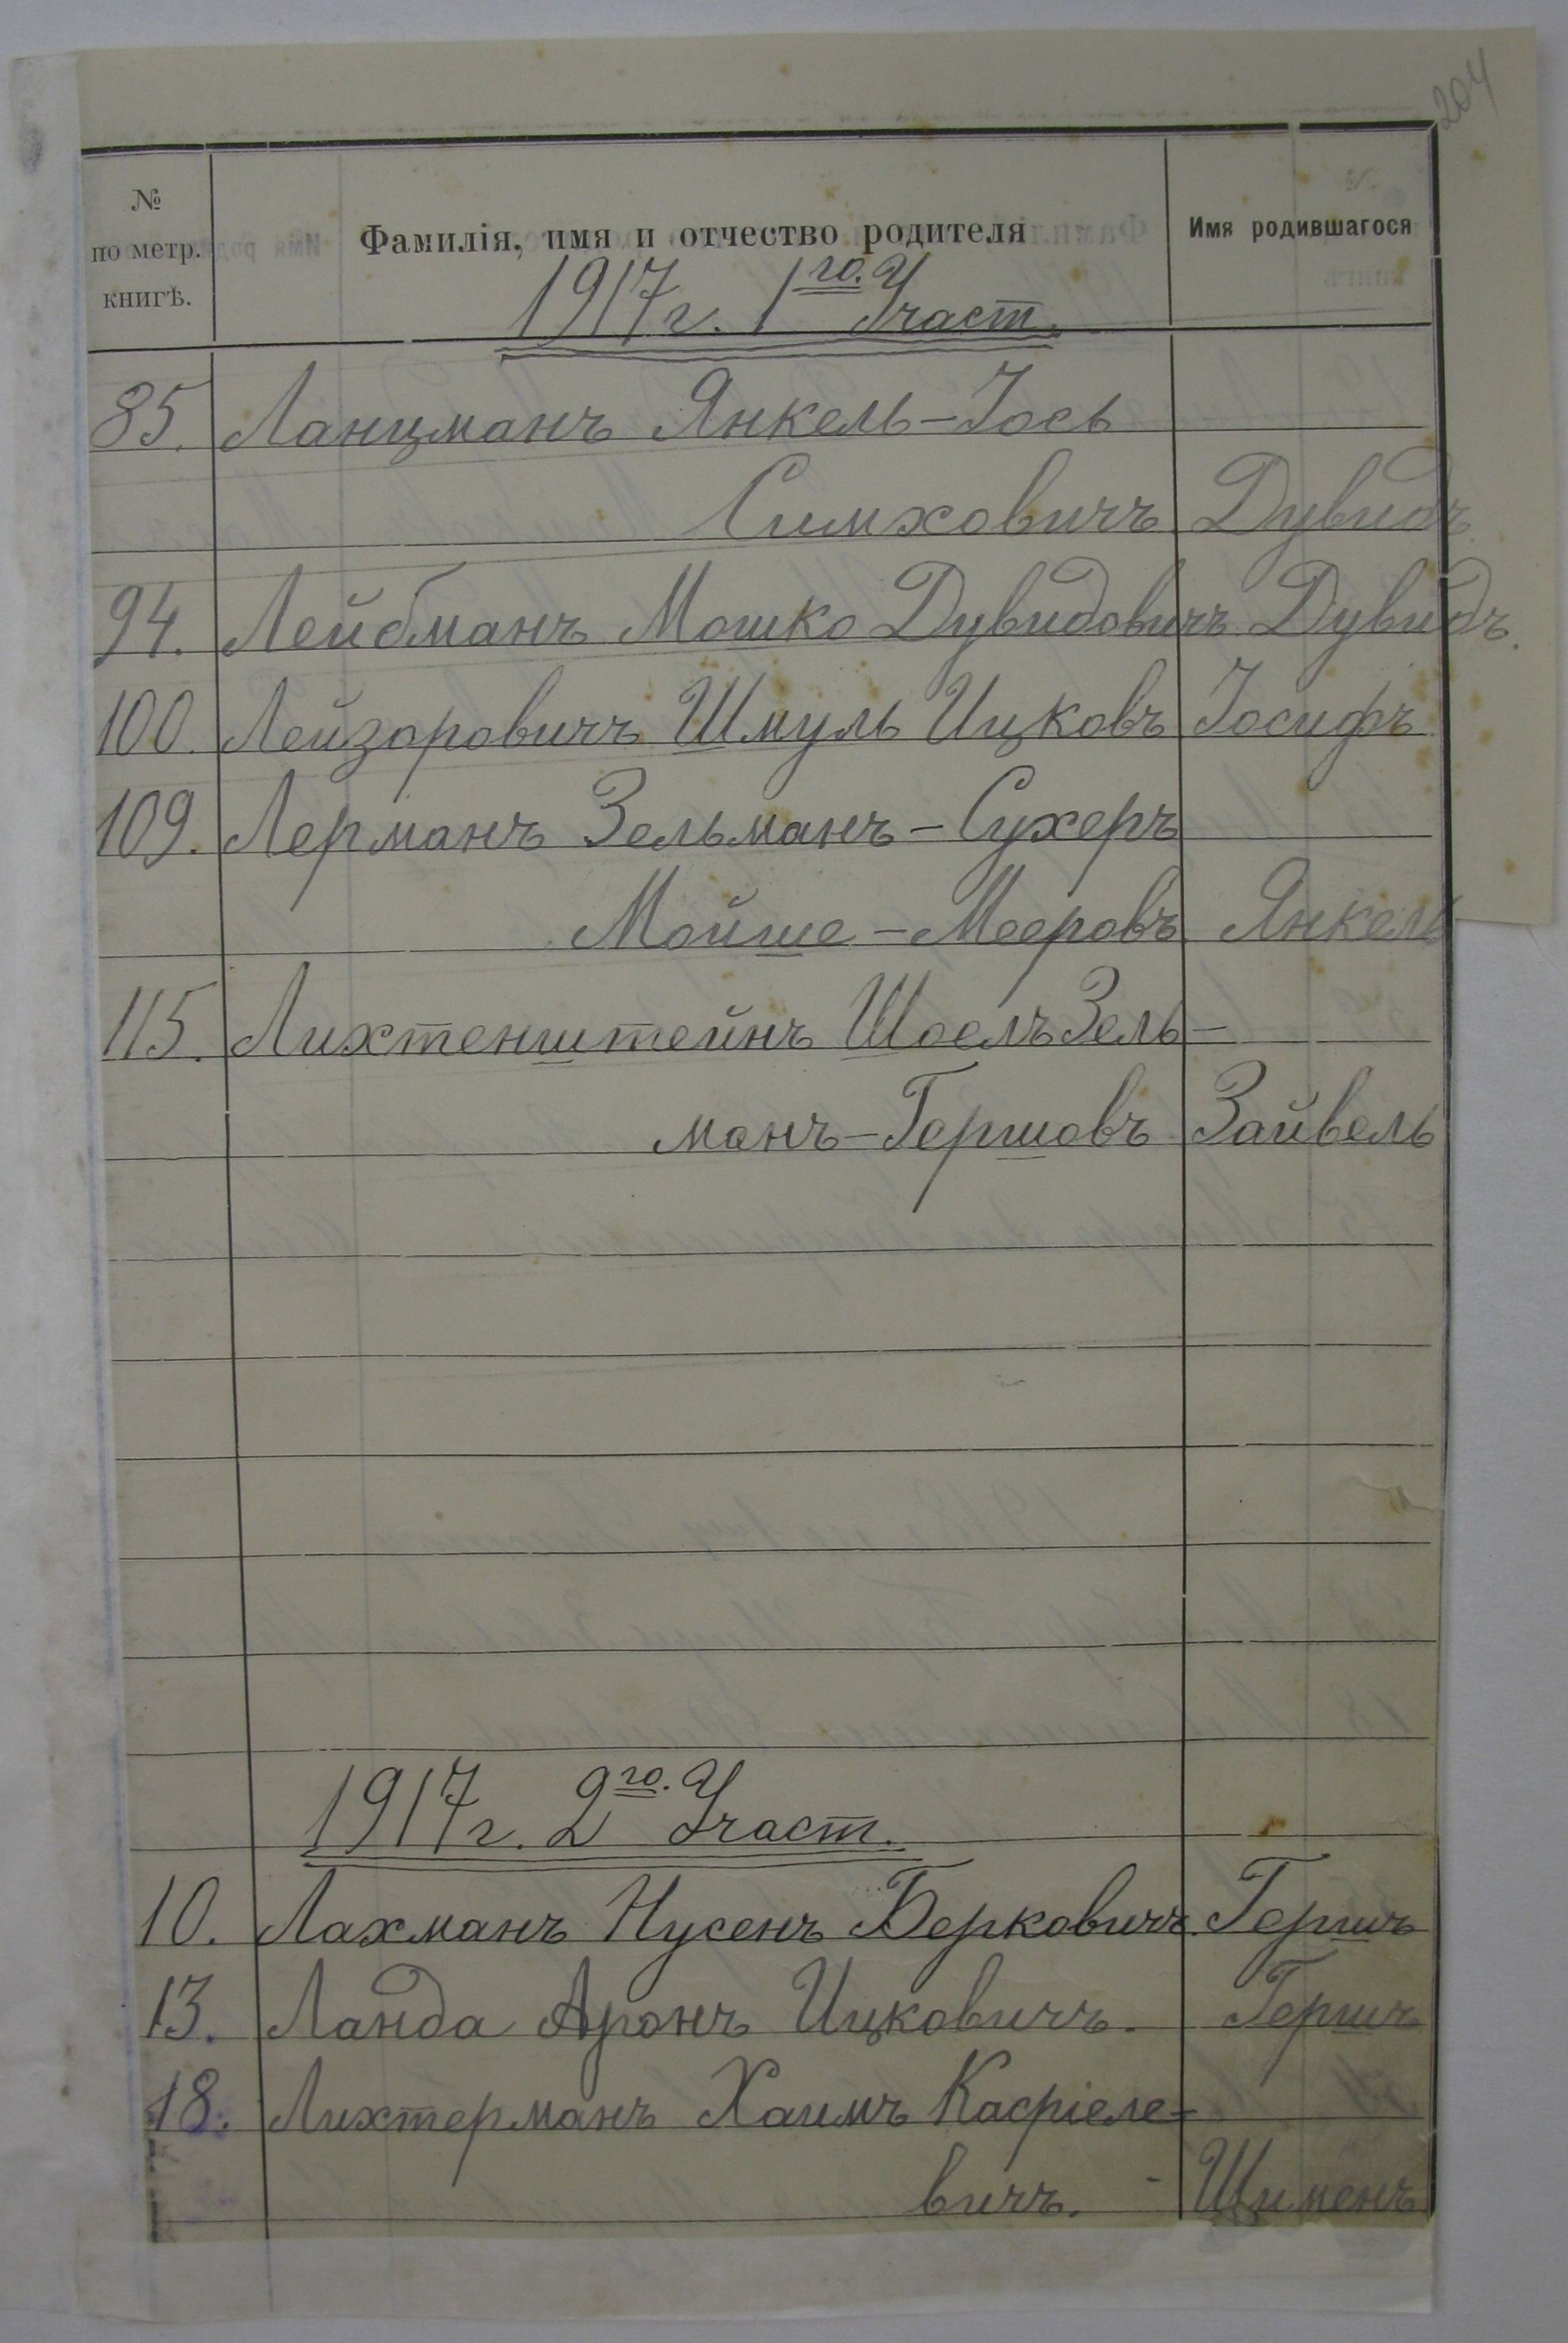 204
№ по метр. книгѣ. Фамилія, имя и отчество родителя Имя родившагося
1917г. 1го. Участ.
85. Ланцманъ Янкель-Іось
Симховичъ Дувидъ
94. Лейбманъ Мошко Дувидовичъ Дувидъ.
100. Лейзаровичъ Шмуль Ицковъ Іосифъ
109. Лерманъ Зельманъ-Сухеръ
Мойше-Мееровъ Янкель
115. Лихтенштейнъ Шоелъ Зель-
манъ-Гершовъ Зайвель
1917г. 2го. Участ.
10. Лахманъ Нусенъ Берковичъ. Гершъ
13. Ланда Аронъ Ицковичъ. Гершъ
18. Лихтерманъ Хаимъ Касріеле-
вичъ. Шименъ